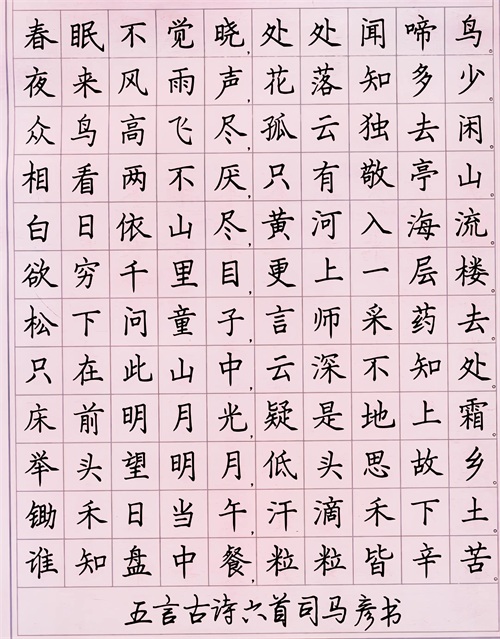 春眠不觉晓，处处闻啼鸟。
夜来风雨声，花落知多少。
众鸟高飞尽，孤云独去闲。
相看两不厌，只有敬亭山。
白日依山尽，黄河入海流。
欲穷千里目，更上一层楼。
松下问童子，言师采药去。
只在此山中，云深不知处。
床前明月光，疑是地上霜。
举头望明月，低头思故乡。
锄禾日当午，汗滴禾下土。
谁知盘中餐，粒粒皆辛苦。
五言古诗六首司马彦书